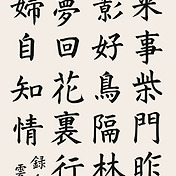 事柴門昨
影好鳥隔林
夢回花裏行
婦自知情
錄